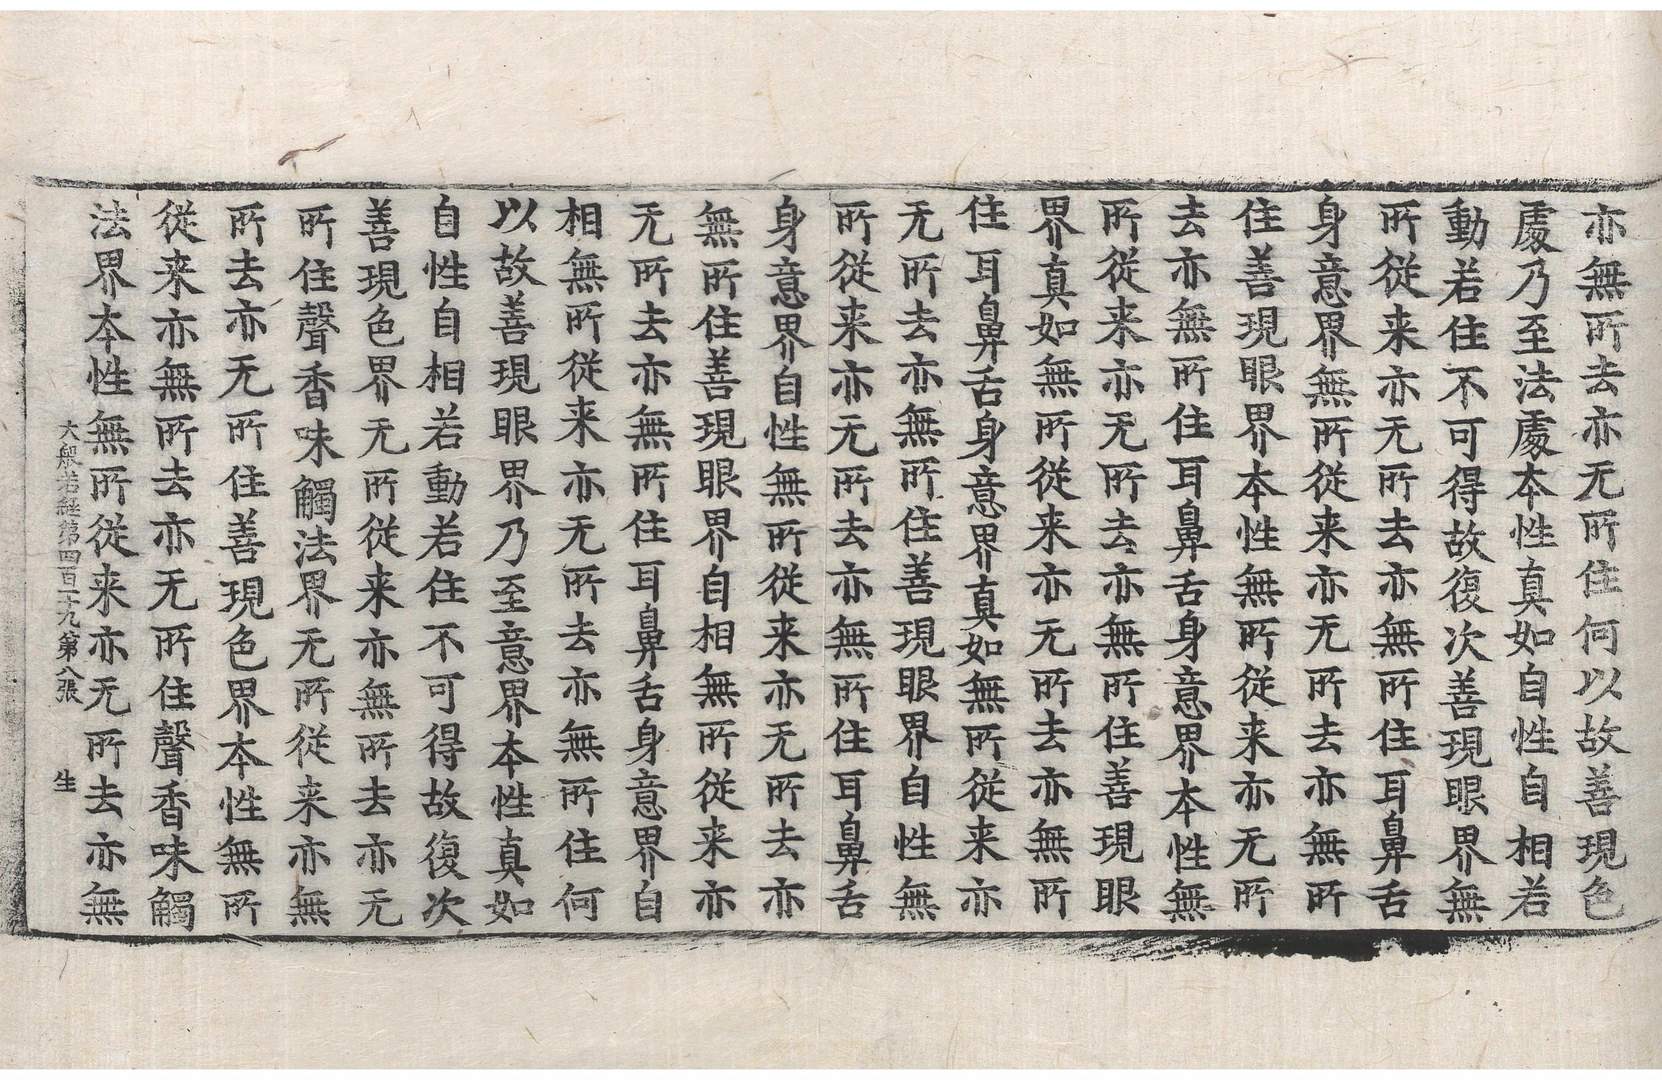 亦無所去亦无所住何以故善現色
處乃至法處本性真如自性自相若
動若住不可得故復次善現眼界無
所從来亦无所去亦無所住耳鼻舌
身意界無所從来亦无所去亦無所
住善現眼界本性無所從来亦无所
去亦無所住耳鼻舌身意界本性無
所從来亦无所去亦無所住善現眼
界真如無所從来亦无所去亦無所
住耳鼻舌身意界真如無所從来亦
无所去亦無所住善現眼界自性無
所從来亦无所去亦無所住耳鼻舌
身意界自性無所從来亦无所去亦
無所住善現眼界自相無所從来亦
无所去亦無所住耳鼻舌身意界自
相無所從来亦无所去亦無所住何
以故善現眼界乃至意界本性真如
自性自相若動若住不可得故復次
善現色界无所從来亦無所去亦无
所住聲香味觸法界无所從来亦無
所去亦无所住善現色界本性無所
從来亦無所去亦无所住聲香味觸
法界本性無所從来亦无所去亦無
大般若経第四百一十九第八張 生